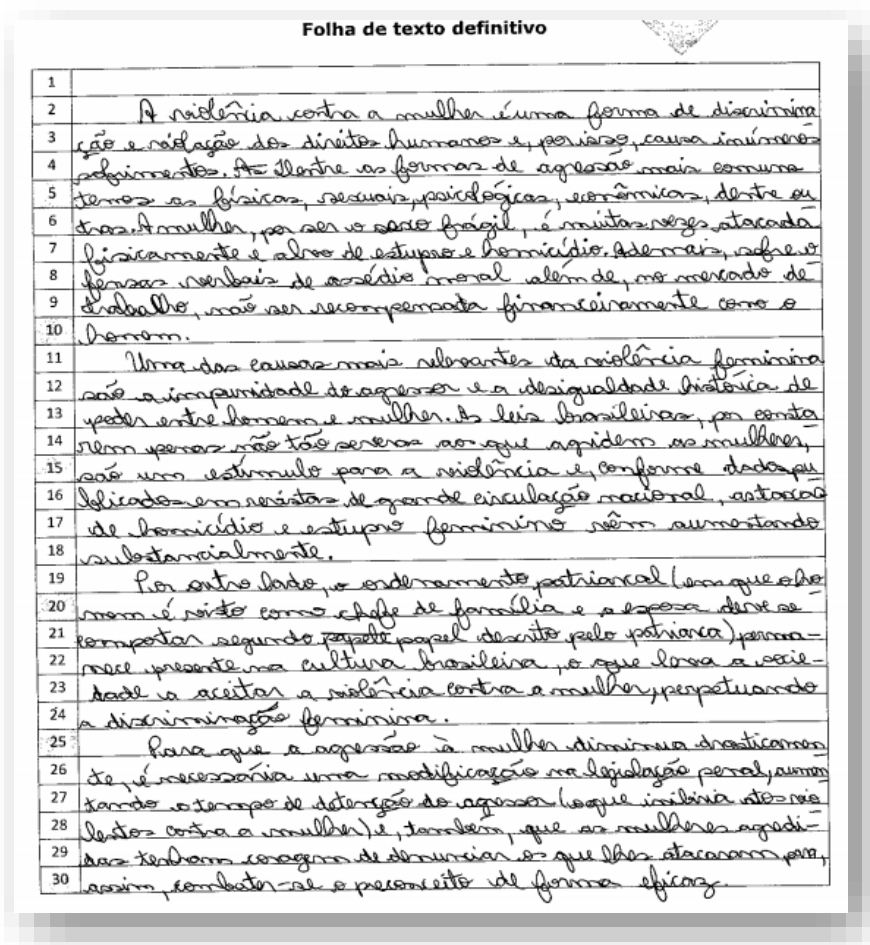 Folha de texto definitivo
1
2 A violência contra a mulher é uma forma de discrimina
3 ção e violação dos direitos humanos e, por isso, causa inúmeros
4 sofrimentos. As Dentre as formas de agressão mais comuns
5 temos as físicas, sexuais, psicológicas, econômicas, dentre ou
6 tras. A mulher, por ser o sexo frágil, é muitas vezes atacada
7 fisicamente e alvo de estupro e homicídio. Ademais, sofre o
8 fensas verbais de assédio moral além de, no mercado de
9 trabalho, não ser recompensada financeiramente como o
10 homem.
11 Uma das causas mais relevantes da violência feminina
12 são a impunidade do agressor e a desigualdade histórica de
13 poder entre homem e mulher. As leis brasileiras, por consta
14 rem penas não tão severas aos que agridem as mulheres,
15 são um estímulo para a violência e, conforme dados pu
16 blicados em revistas de grande circulação nacional, as taxas
17 de homicídio e estupro feminino vêm aumentando
18 substancialmente.
19 Por outro lado, o ordenamento patriarcal (em que o ho
20 mem é visto como chefe de família e a esposa deve se
21 comportar segundo papele papel descrito pelo patriarca) perma-
22 nece presente na cultura brasileira, o que leva a socie-
23 dade a aceitar a violência contra a mulher, perpetuando
24 a discriminação feminina.
25 Para que a agressão à mulher diminua drasticamen
26 te, é necessária uma modificação na legislação penal, aumen
27 tando o tempo de detenção do agressor (o que inibiria atos vio
28 lentos contra a mulher) e, também, que as mulheres agredi-
29 das tenham coragem de denunciar os que lhes atacaram, para,
30 assim, combater-se o preconceito de forma eficaz.